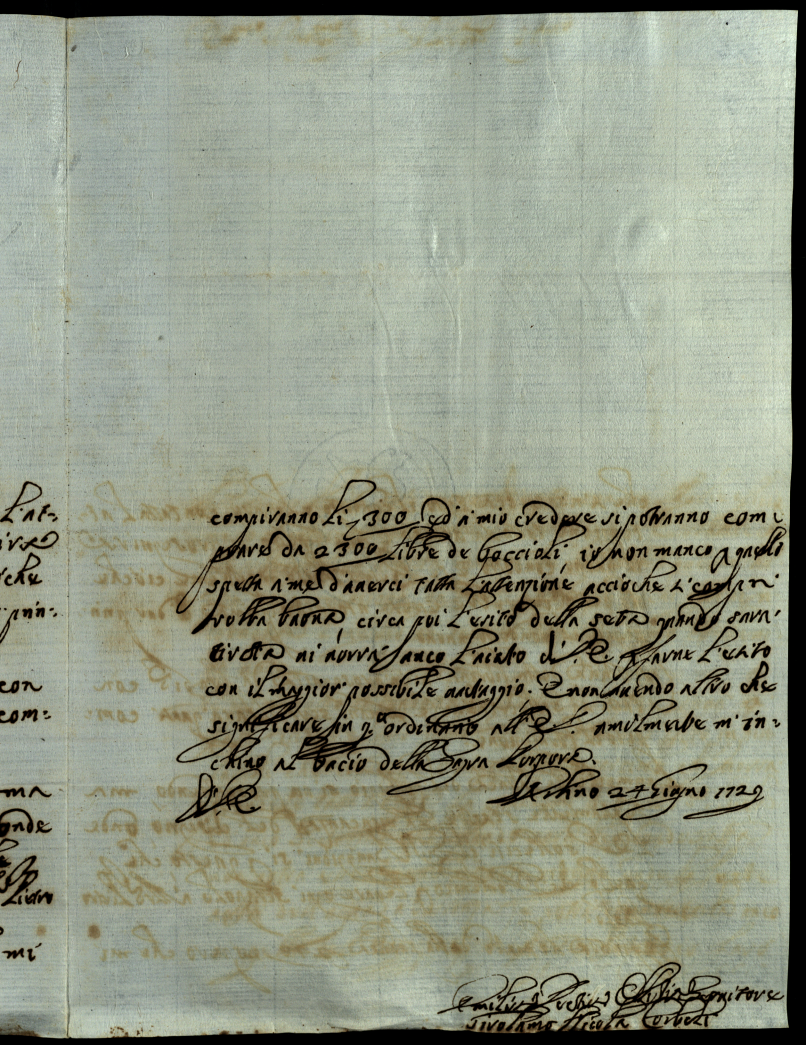 L'at-
con
com:
ma
onde
mi
compiranno li 300, ed à mio credere si potranno com:
prare da 2300 libre de boccioli io non manco p quello
spetta à me d'averci tutta l'attenzione acciòche si compri
robba buona, circa poi l'esito della seta quando sarà
tiratta vi vorrà anco l'aiuto di V. E. p farne l'esito
con il maggior possibile vantaggio. E non avendo altro che
significare in q.o ordinario all'E. V. umilmente m'in:
chino al bacio della Sagra Porpora.
D. V. E.
Urbino 24 Giugno 1729
Umiliss.o Devotiss.o Servitore
Girolamo Nicola